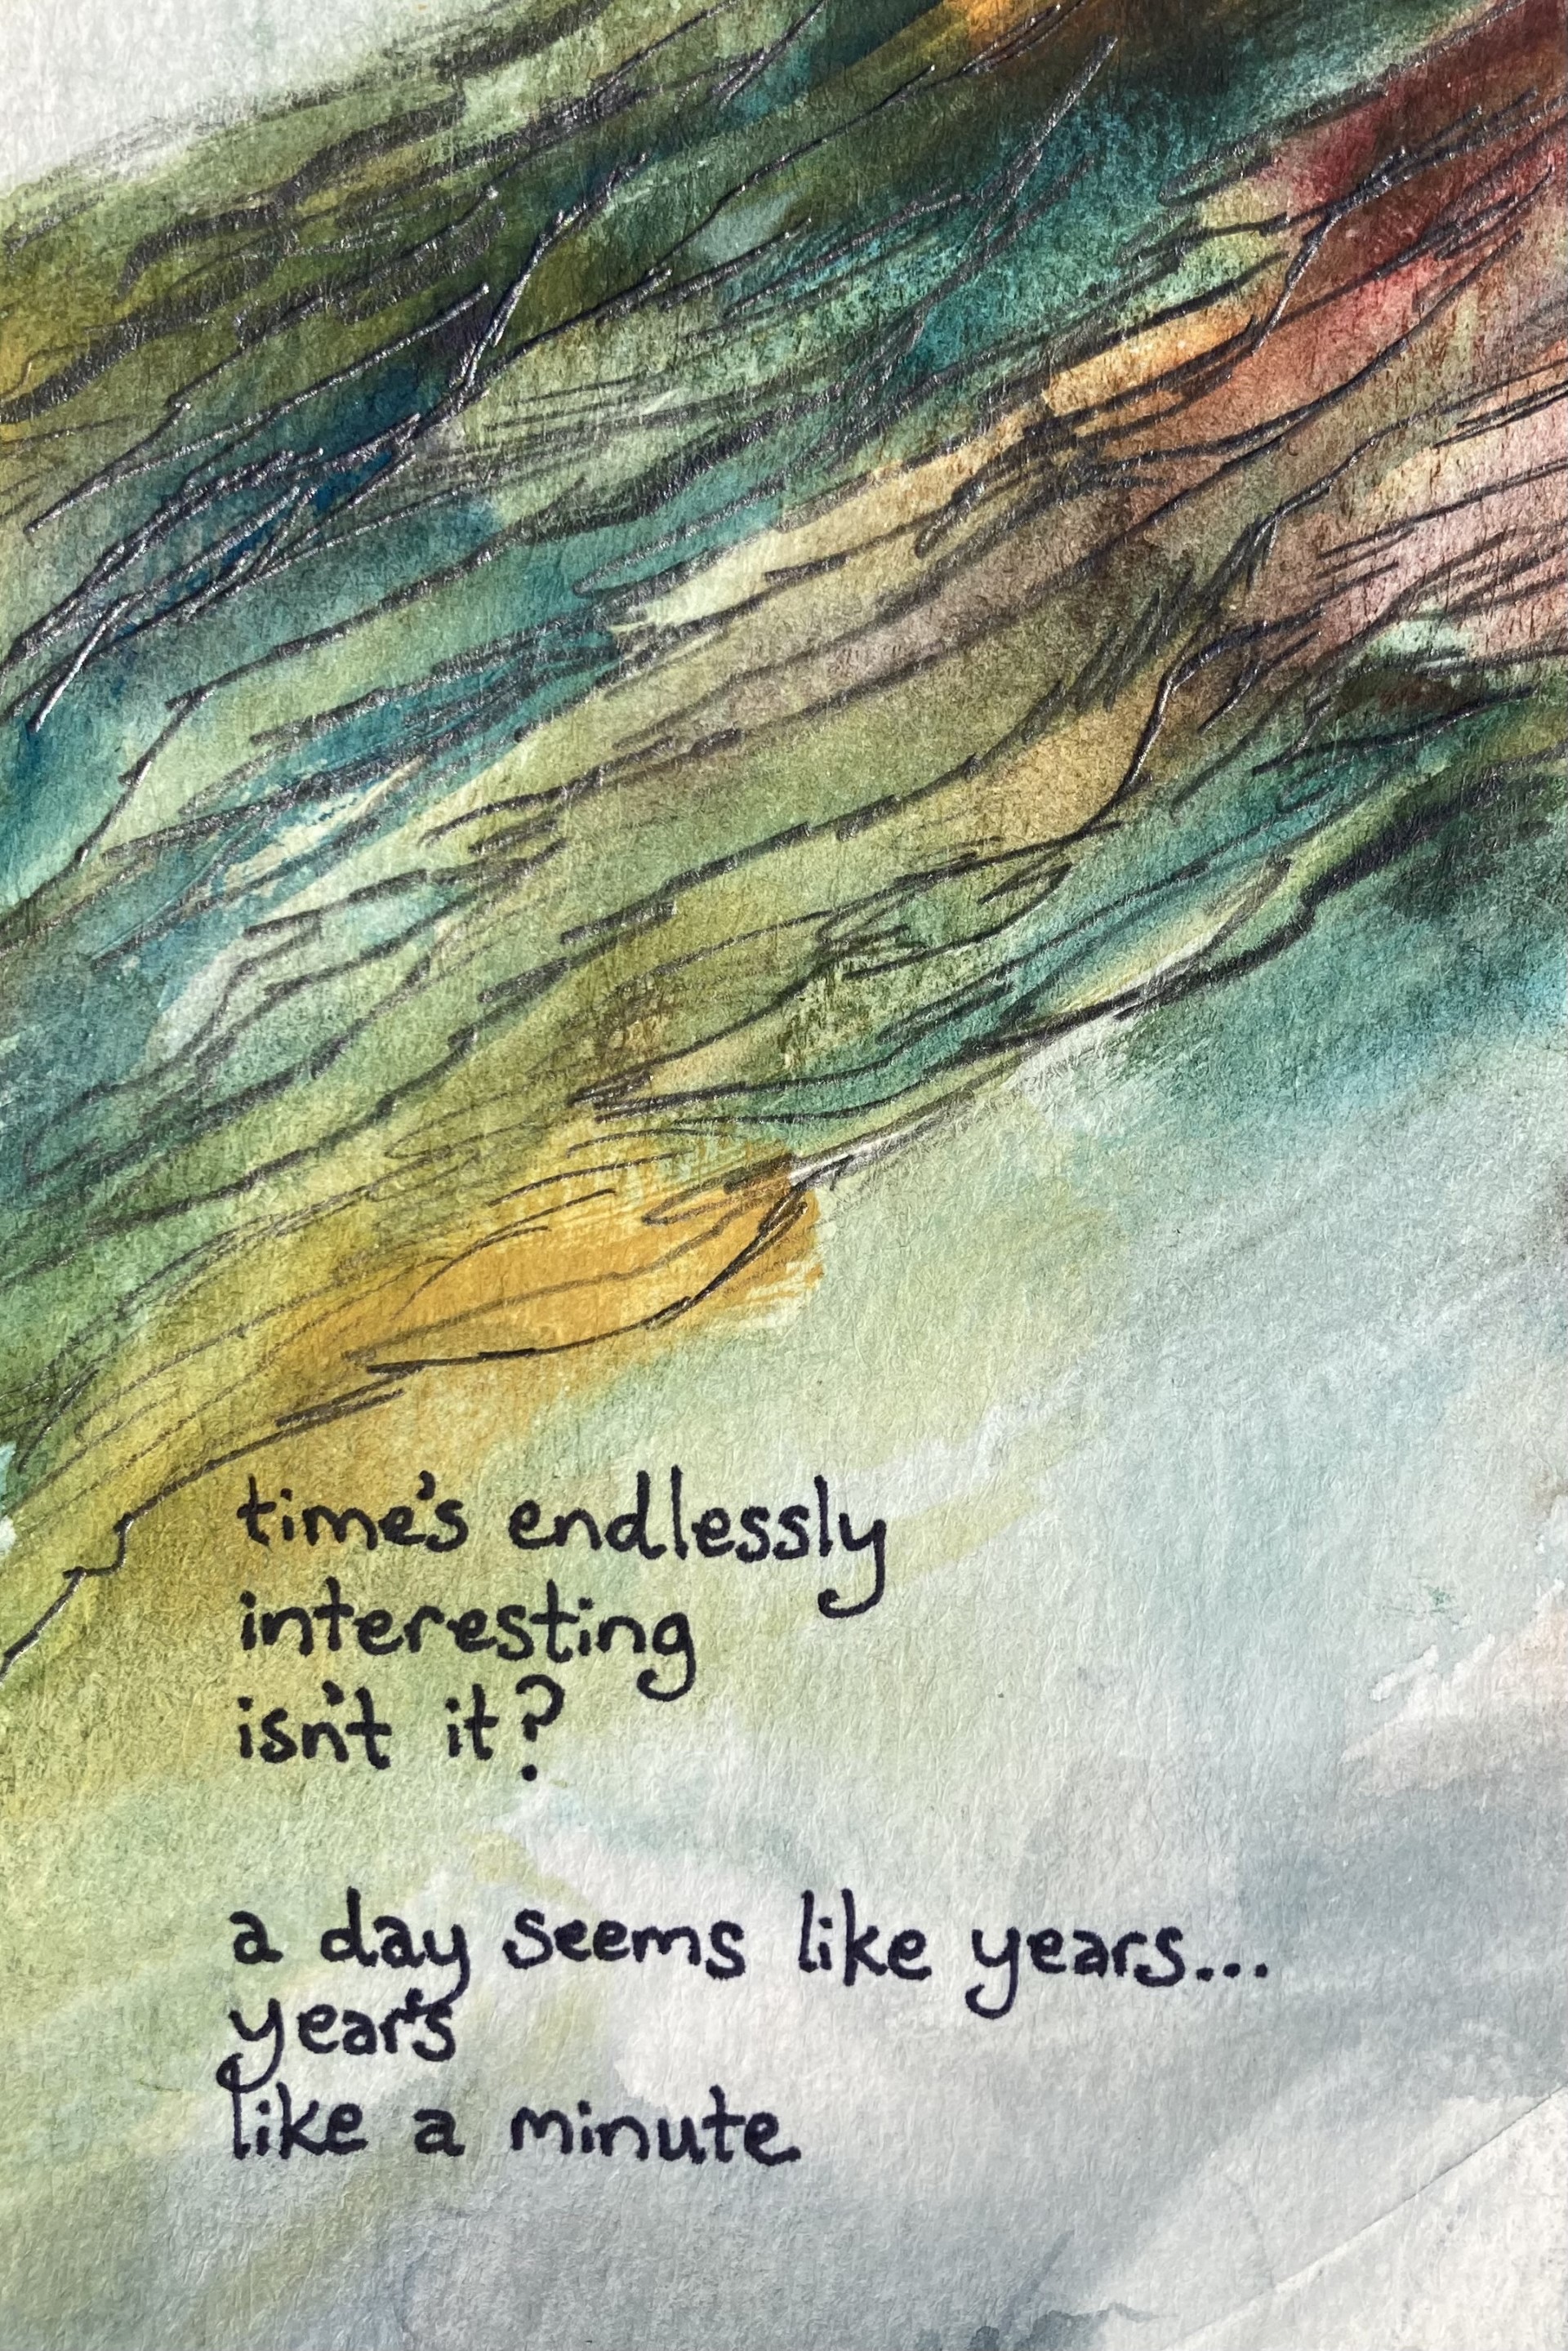 time's endlessly
interesting
isn't it?
a day seems like years...
year's
like a minute